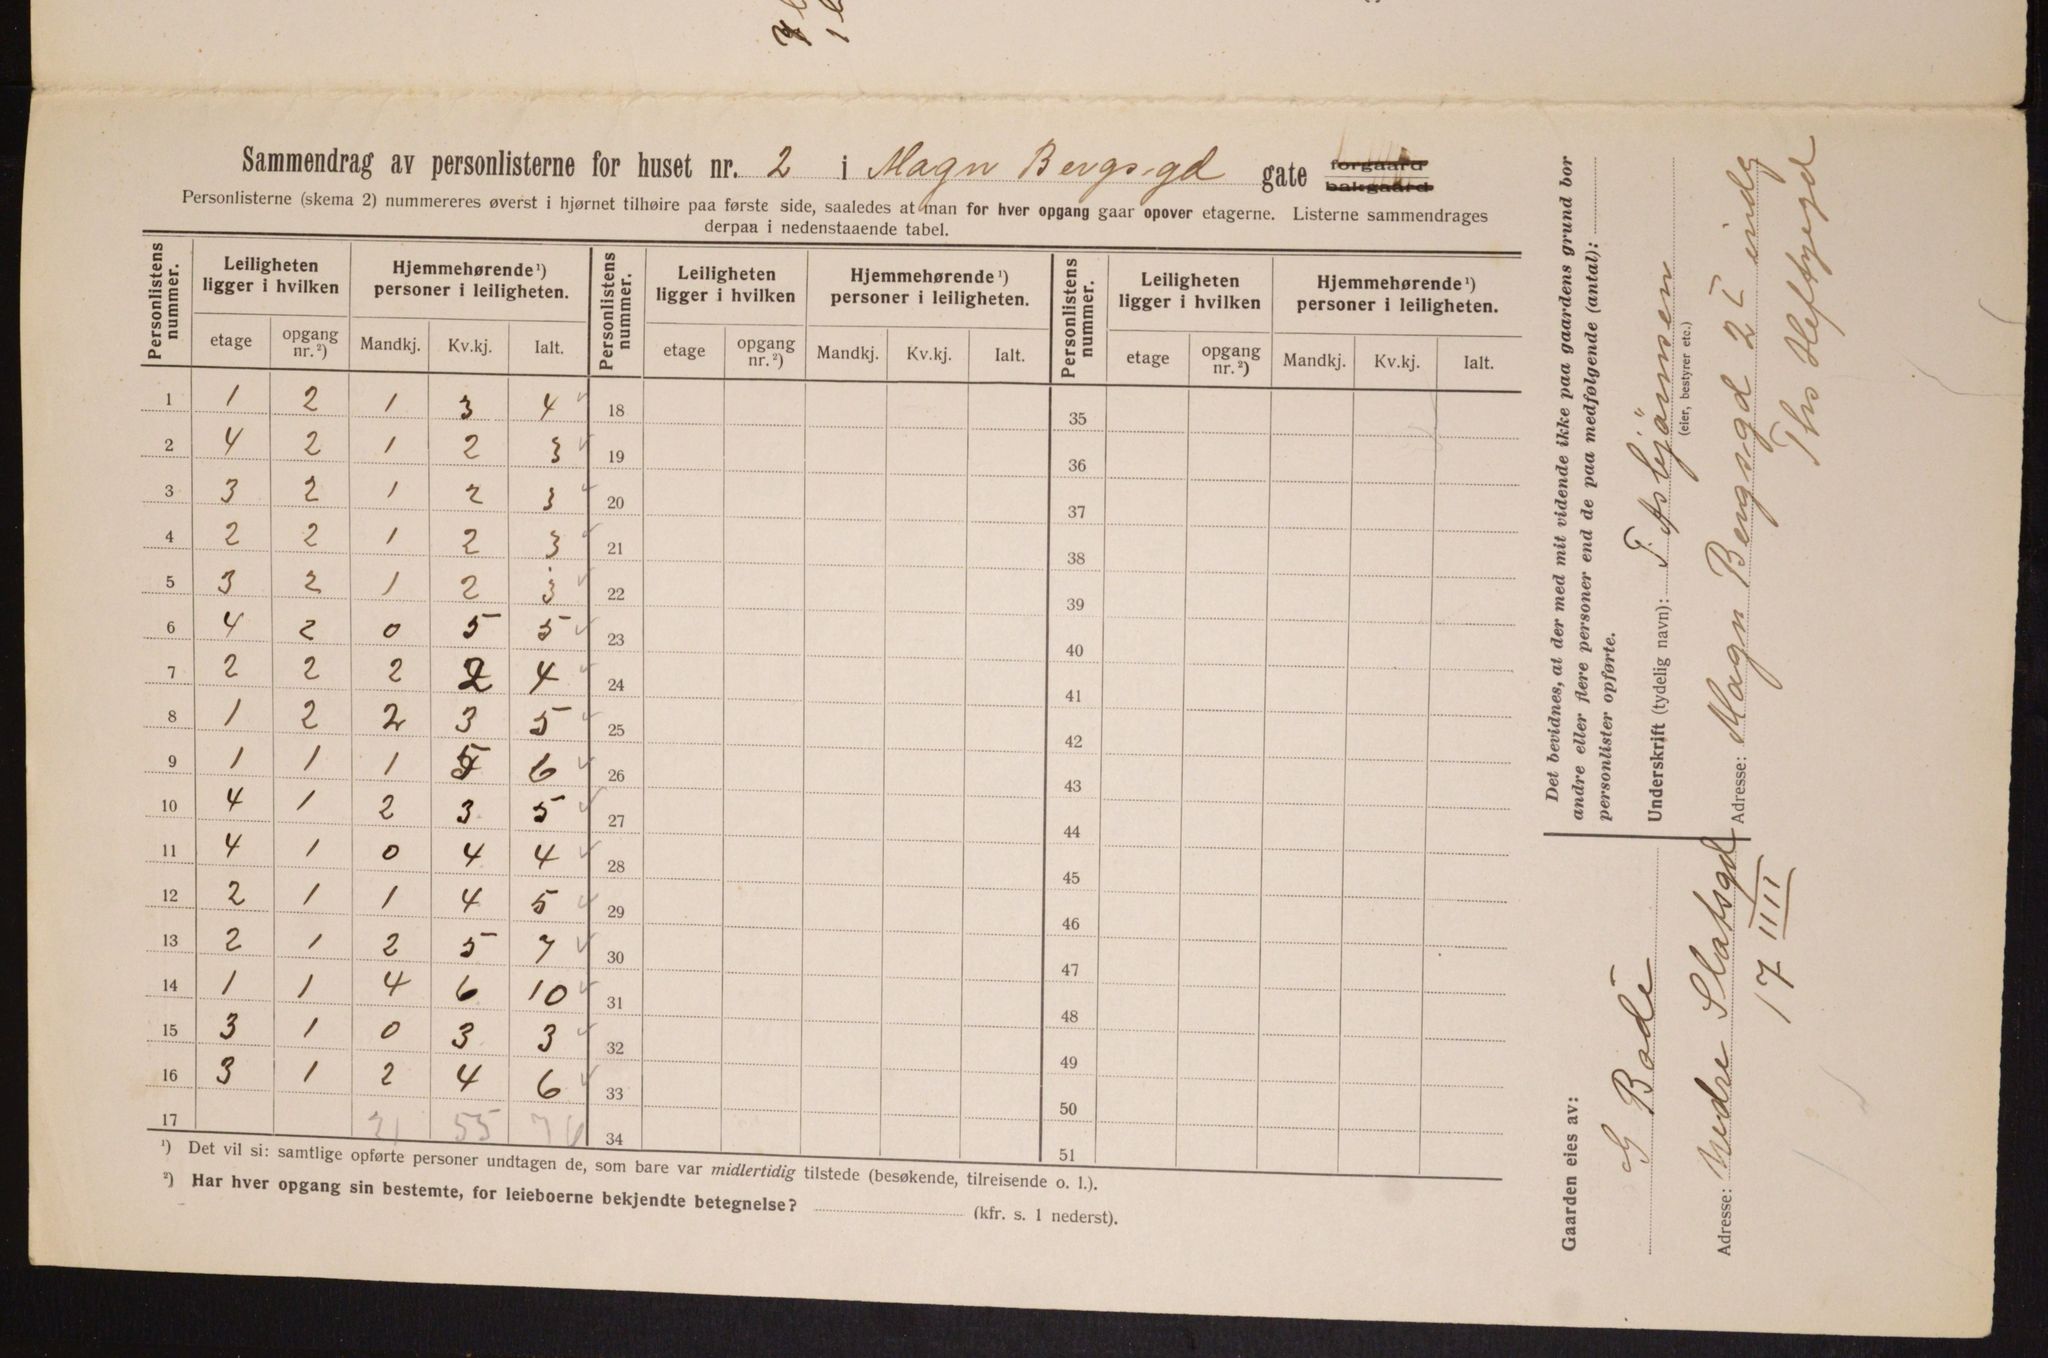 Sammendrag av personlisterne for huset nr. 2 i Magn Bergs-gd gate forgaard bakgaard
Personlisterne (skema 2) nummereres øverst i hjørnet tilhøire paa første side, saaledes at man for hver opgang gaar opover etagerne. Listerne sammendrages
derpaa i nedenstaaende tabel.
Personlistens nummer. Leiligheten ligger i hvilken Hjemmehørende ¹) personer i leiligheten. Personlistens nummer. Leiligheten ligger i hvilken Hjemmehørende ¹) personer i leiligheten. Personlistens nummer. Leiligheten ligger i hvilken Hjemmehørende ¹) personer i leiligheten.
etage opgang nr. ²) Mandkj. Kv.kj. Ialt. etage opgang nr. ²) Mandkj. Kv.kj. Ialt. etage opgang nr. ²) Mandkj. Kv.kj. Ialt.
1 1 2 1 3 4 18 35
2 4 2 1 2 3 19 36
3 3 2 1 2 3 20 37
4 2 2 1 2 3 21 38
5 3 2 1 2 3 22 39
6 4 2 0 5 5 23 40
7 2 2 2 2 4 24 41
8 1 2 2 3 5 25 42
9 1 1 1 5 6 26 43
10 4 1 2 3 5 27 44
11 4 1 0 4 4 28 45
12 2 1 1 4 5 29 46
13 2 1 2 5 7 30 47
14 1 1 4 6 10 31 48
15 3 1 0 3 3 32 49
16 3 1 2 4 6 33 50
17 21 55 76 34 51
¹) Det vil si: samtlige opførte personer undtagen de, som bare var midlertidig tilstede (besøkende, tilreisende o. l.).
²) Har hver opgang sin bestemte, for leieboerne bekjendte betegnelse? (kfr. s. 1 nederst).
Det bevidnes, at der med mit vidende ikke paa gaardens grund bor
andre eller flere personer end de paa medfølgende (antal):
personlister opførte.
Underskrift (tydelig navn): T. Asbjörnsen
(eier, bestyrer etc.)
Adresse: Magn Bergsgd 2 I indg
Ths Heftyegd
Gaarden eies av:
G Bade
Adresse: Nedre Slotsgd
17 IIII